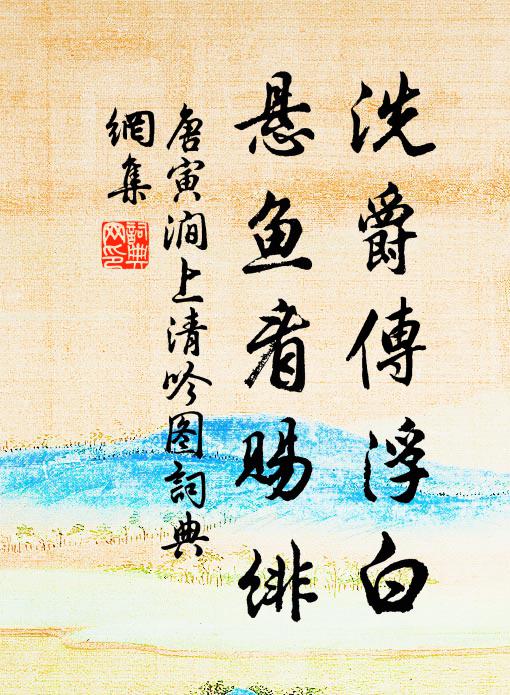 洗爵傳浮白
悬鱼看賜绯
唐寅涧上清吟图詞典
網集
詞典
网印